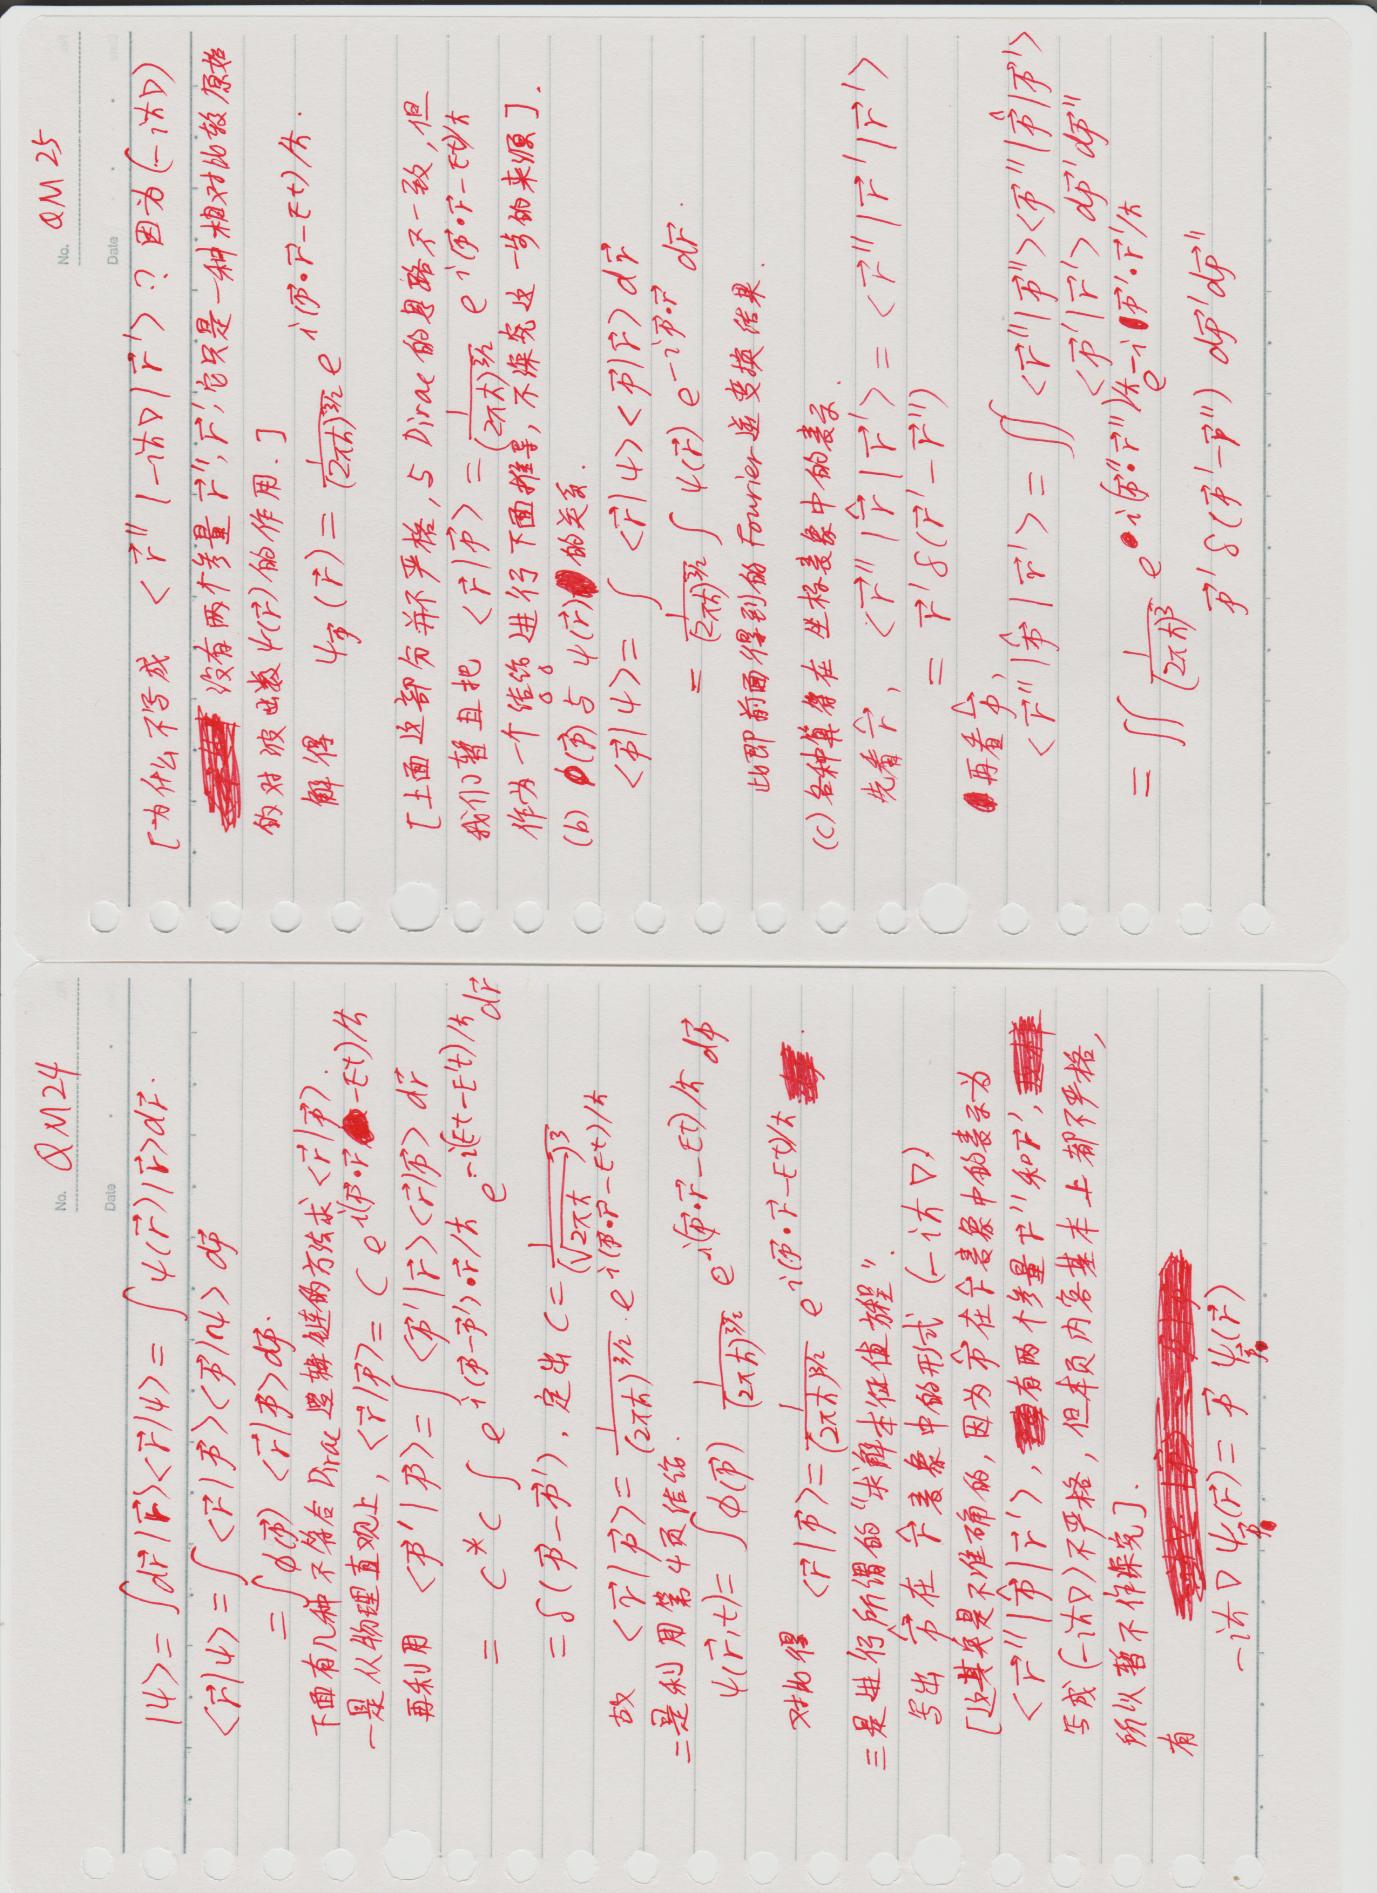 No. QM24
Date
|ψ> = ∫d\vec{r} |\vec{r}><\vec{r}|ψ> = ∫ ψ(\vec{r}) |\vec{r}> d\vec{r}.
<\vec{r}|ψ> = ∫ <\vec{r}|\vec{p}><\vec{p}|ψ> d\vec{p}
= ∫ ϕ(\vec{p}) <\vec{r}|\vec{p}> d\vec{p}.
下面有几种不符合 Dirac 逻辑链的方法求 <\vec{r}|\vec{p}>.
一是从物理直观上, <\vec{r}|\vec{p}> = C e^{i(\vec{p}·\vec{r} - Et)/ħ}
再利用 <\vec{p}'|\vec{p}> = ∫ <\vec{p}'|\vec{r}><\vec{r}|\vec{p}> d\vec{r}
= C*C ∫ e^{i(\vec{p}-\vec{p}')·\vec{r}/ħ} e^{-i(Et-E't)/ħ} d\vec{r}
= δ(\vec{p}-\vec{p}'). 定出 C = \frac{1}{(\sqrt{2πħ})^3}
故 <\vec{r}|\vec{p}> = \frac{1}{(2πħ)^{3/2}} · e^{i(\vec{p}·\vec{r}-Et)/ħ}
二是利用第4页结论.
ψ(\vec{r},t) = ∫ϕ(\vec{p}) \frac{1}{(2πħ)^{3/2}} e^{i(\vec{p}·\vec{r}-Et)/ħ} d\vec{p}
对比得 <\vec{r}|\vec{p}> = \frac{1}{(2πħ)^{3/2}} e^{i(\vec{p}·\vec{r}-Et)/ħ} .
三是进行所谓的“求解本征值方程”.
写出 \hat{\vec{p}} 在 \hat{\vec{r}} 表象中的形式 (-iħ∇)
[这其实是不准确的, 因为 \hat{\vec{p}} 在 \hat{\vec{r}} 表象中的表示为
<\vec{r}''|\hat{\vec{p}}|\vec{r}'>, 有两个参量 \vec{r}'' 和 \vec{r}',
写成 (-iħ∇) 不严格, 但本页内容基本上都不严格,
所以暂不作深究].
有
-iħ∇ψ_{\vec{p}}(\vec{r}) = \vec{p} ψ_{\vec{p}}(\vec{r})
No. QM25
Date
[为什么不写成 <\vec{r}''|-iħ∇|\vec{r}'> ? 因为 (-iħ∇)
没有两个参量 \vec{r}'', \vec{r}', 它只是一种相对比较原始
的对波函数 ψ(\vec{r}) 的作用.]
解得 ψ_{\vec{p}}(\vec{r}) = \frac{1}{(2πħ)^{3/2}} e^{i(\vec{p}·\vec{r}-Et)/ħ}.
[上面这部分并不严格, 与 Dirac 的思路不一致, 但
我们暂且把 <\vec{r}|\vec{p}> = \frac{1}{(2πħ)^{3/2}} e^{i(\vec{p}·\vec{r}-Et)/ħ}
作为一个结论进行下面推导, 不深究这一步的来源].
(b) ϕ(\vec{p}) 与 ψ(\vec{r}) 的关系.
<\vec{p}|ψ> = ∫ <\vec{r}|ψ><\vec{p}|\vec{r}> d\vec{r}
= \frac{1}{(2πħ)^{3/2}} ∫ ψ(\vec{r}) e^{-i\vec{p}·\vec{r}} d\vec{r}.
此即前面得到的 Fourier 逆变换结果.
(c) 各种算符在坐标表象中的表示.
先看 \hat{\vec{r}}, <\vec{r}''|\hat{\vec{r}}|\vec{r}'> = <\vec{r}''|\vec{r}'|\vec{r}'>
= \vec{r}' δ(\vec{r}'-\vec{r}'')
再看 \hat{\vec{p}},
<\vec{r}''|\hat{\vec{p}}|\vec{r}'> = ∬ <\vec{r}''|\vec{p}''><\vec{p}''|\hat{\vec{p}}|\vec{p}'>
<\vec{p}'|\vec{r}'> d\vec{p}'d\vec{p}''
= ∬ \frac{1}{(2πħ)^3} e^{i(\vec{p}''·\vec{r}'')/ħ} e^{-i\vec{p}'·\vec{r}'/ħ}
\vec{p}' δ(\vec{p}'-\vec{p}'') d\vec{p}'d\vec{p}''